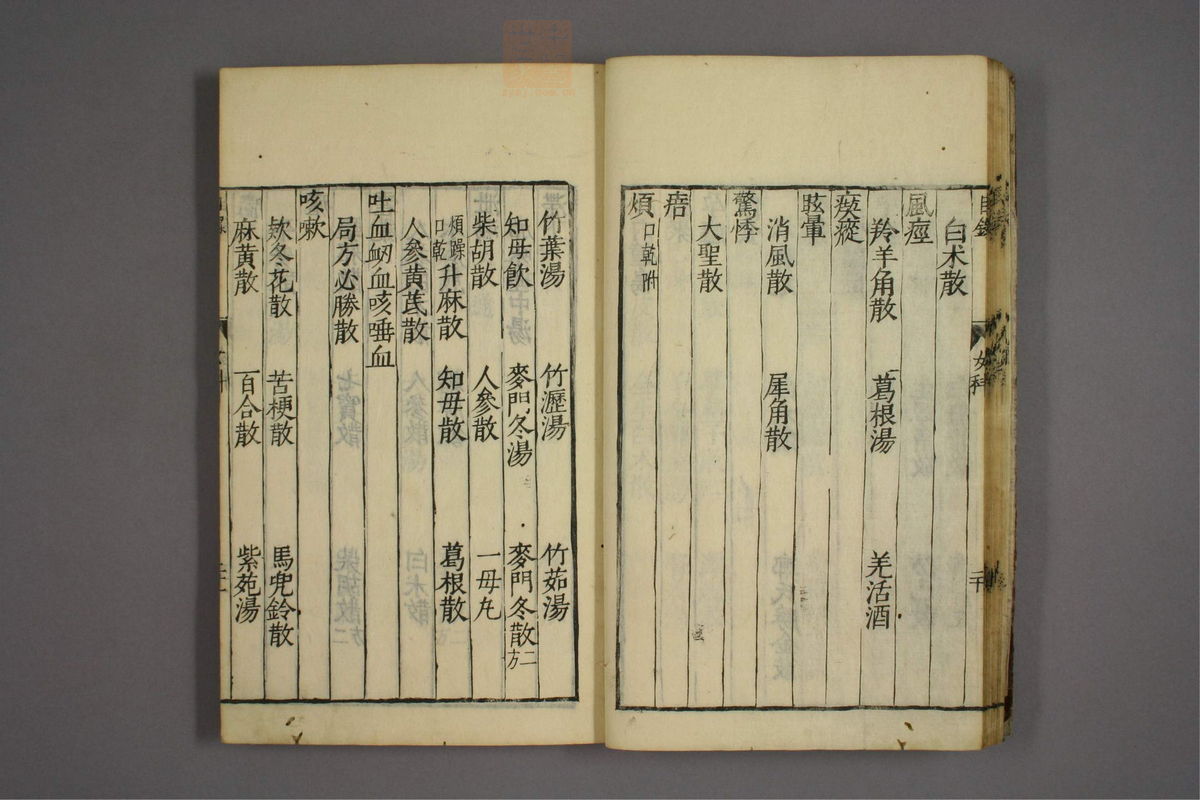 白术散
風痙
羚羊角散 葛根湯 羌活酒
瘈瘲
眩暈
消風散 犀角散
驚悸
大聖散
瘖
煩口乾附
竹葉湯 竹瀝湯 竹茹湯
知母飲 麥門冬湯 麥門冬散二方
柴胡散 人參散 一母丸
煩躁口乾升麻散 知母散 葛根散
人參黃茋散
吐血衂血咳唾血
局方必勝散
咳嗽
欵冬花散 苦梗散 馬兜鈴散
麻黃散 百合散 紫苑湯